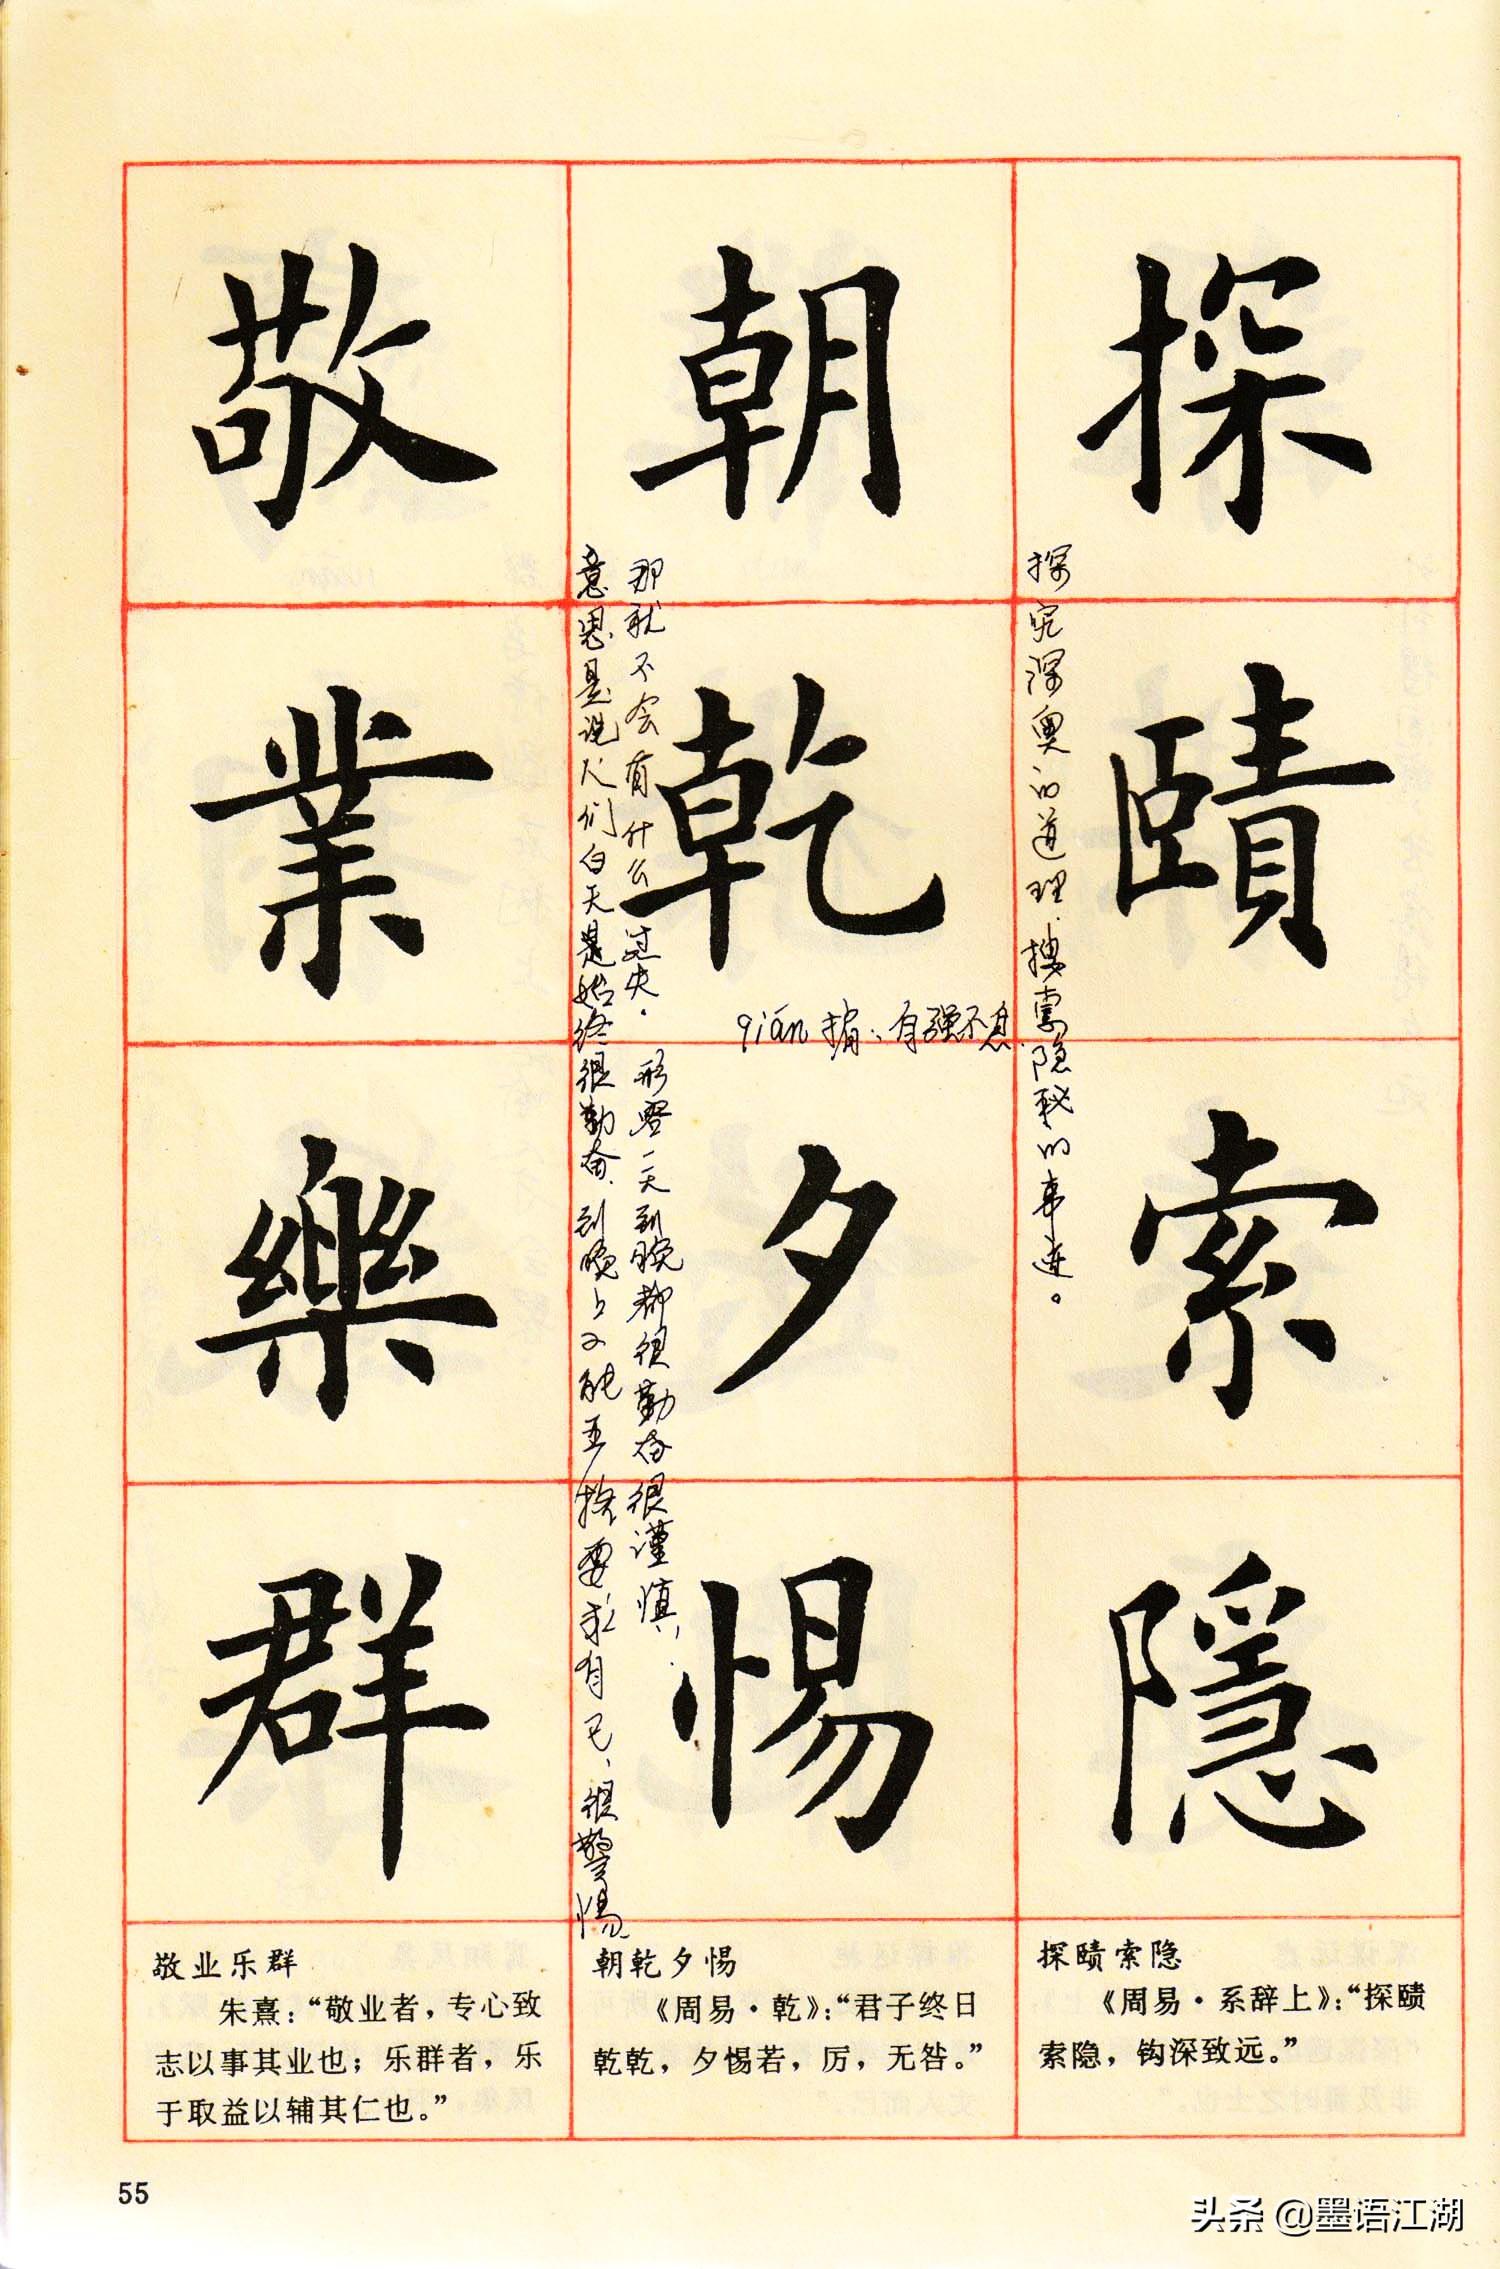 探賾索隱
探究深奥的道理.搜索隐秘的事迹。
朝乾夕惕
qián 指:自强不息.
意思是说人们白天是始终很勤奋、到晚上又能严格要求自己、很警惕
那就不会有什么过失。形容一天到晚都很勤奋很谨慎.
敬業樂群
探赜索隐
《周易·系辞上》:“探赜
索隐，钩深致远。”
朝乾夕惕
《周易·乾》:“君子终日
乾乾，夕惕若，厉，无咎。”
敬业乐群
朱熹:“敬业者，专心致
志以事其业也；乐群者，乐
于取益以辅其仁也。”
55
头条 @墨语江湖